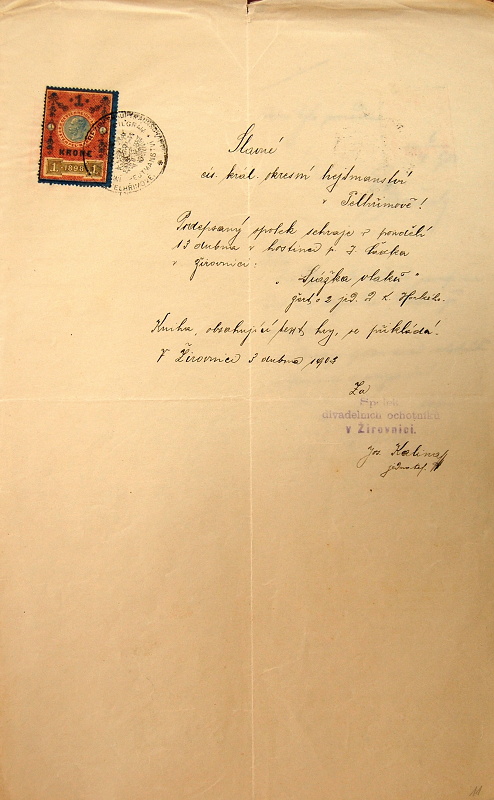 1
KRONE
1 1898 1
PELHŘIMOVĚ
Slavné
cís. král. okresní hejtmanství
v Pelhřimově!
Podepsaný spolek sehraje v pondělí
13 dubna v hostinci p. J.
v Žirovnici:
„Srážka vlaků"
žert o 2 jed.
Kniha, obsahující text hry, se přikládá.
V Žirovnici 3 dubna 1903
Za
Spolek
divadelních ochotníků
v Žirovnici.
Jos. Kalina
jednatel.
11